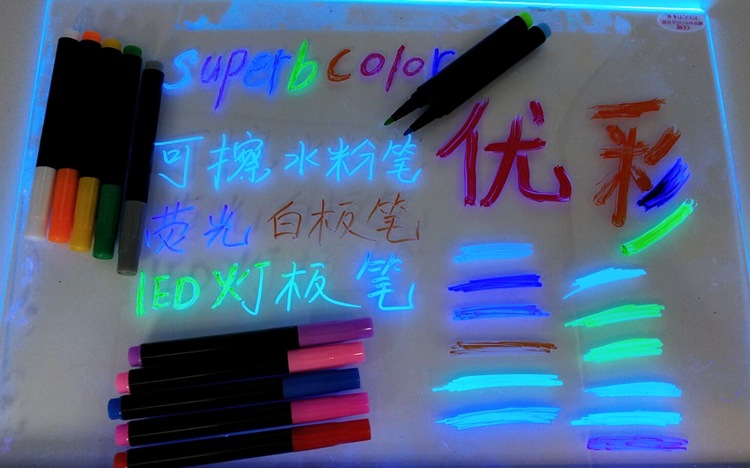 superb color
优彩
可擦水粉笔
荧光 白板笔
LED 灯板笔